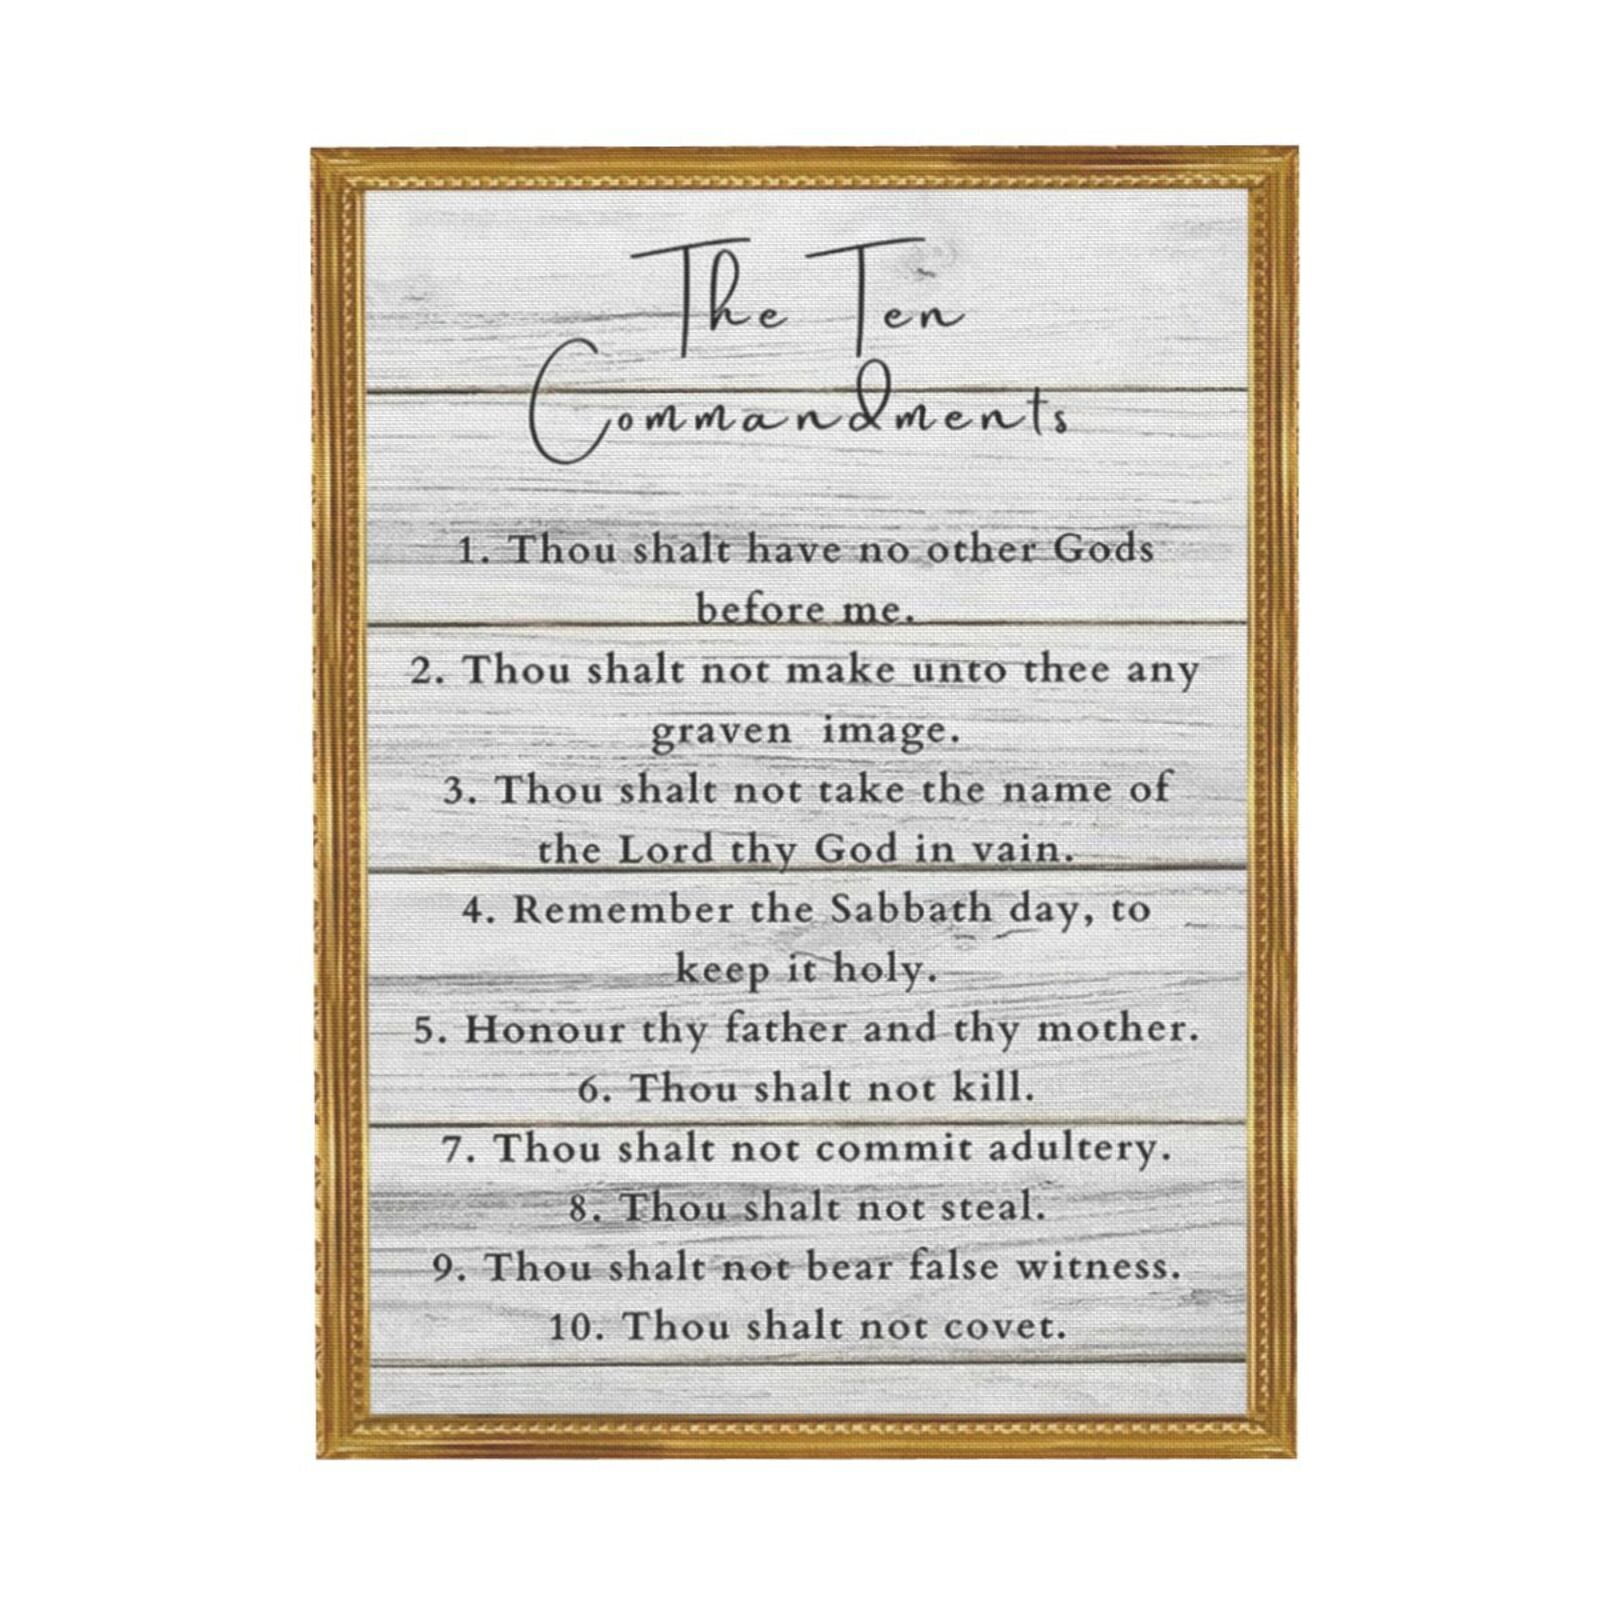 The Ten
Commandments
1. Thou shalt have no other Gods
before me.
2. Thou shalt not make unto thee any
graven image.
3. Thou shalt not take the name of
the Lord thy God in vain.
4. Remember the Sabbath day, to
keep it holy.
5. Honour thy father and thy mother.
6. Thou shalt not kill.
7. Thou shalt not commit adultery.
8. Thou shalt not steal.
9. Thou shalt not bear false witness.
10. Thou shalt not covet.